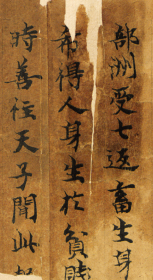 部洲受七返畜生身
希得人身生於貧賤
時善住天子聞此